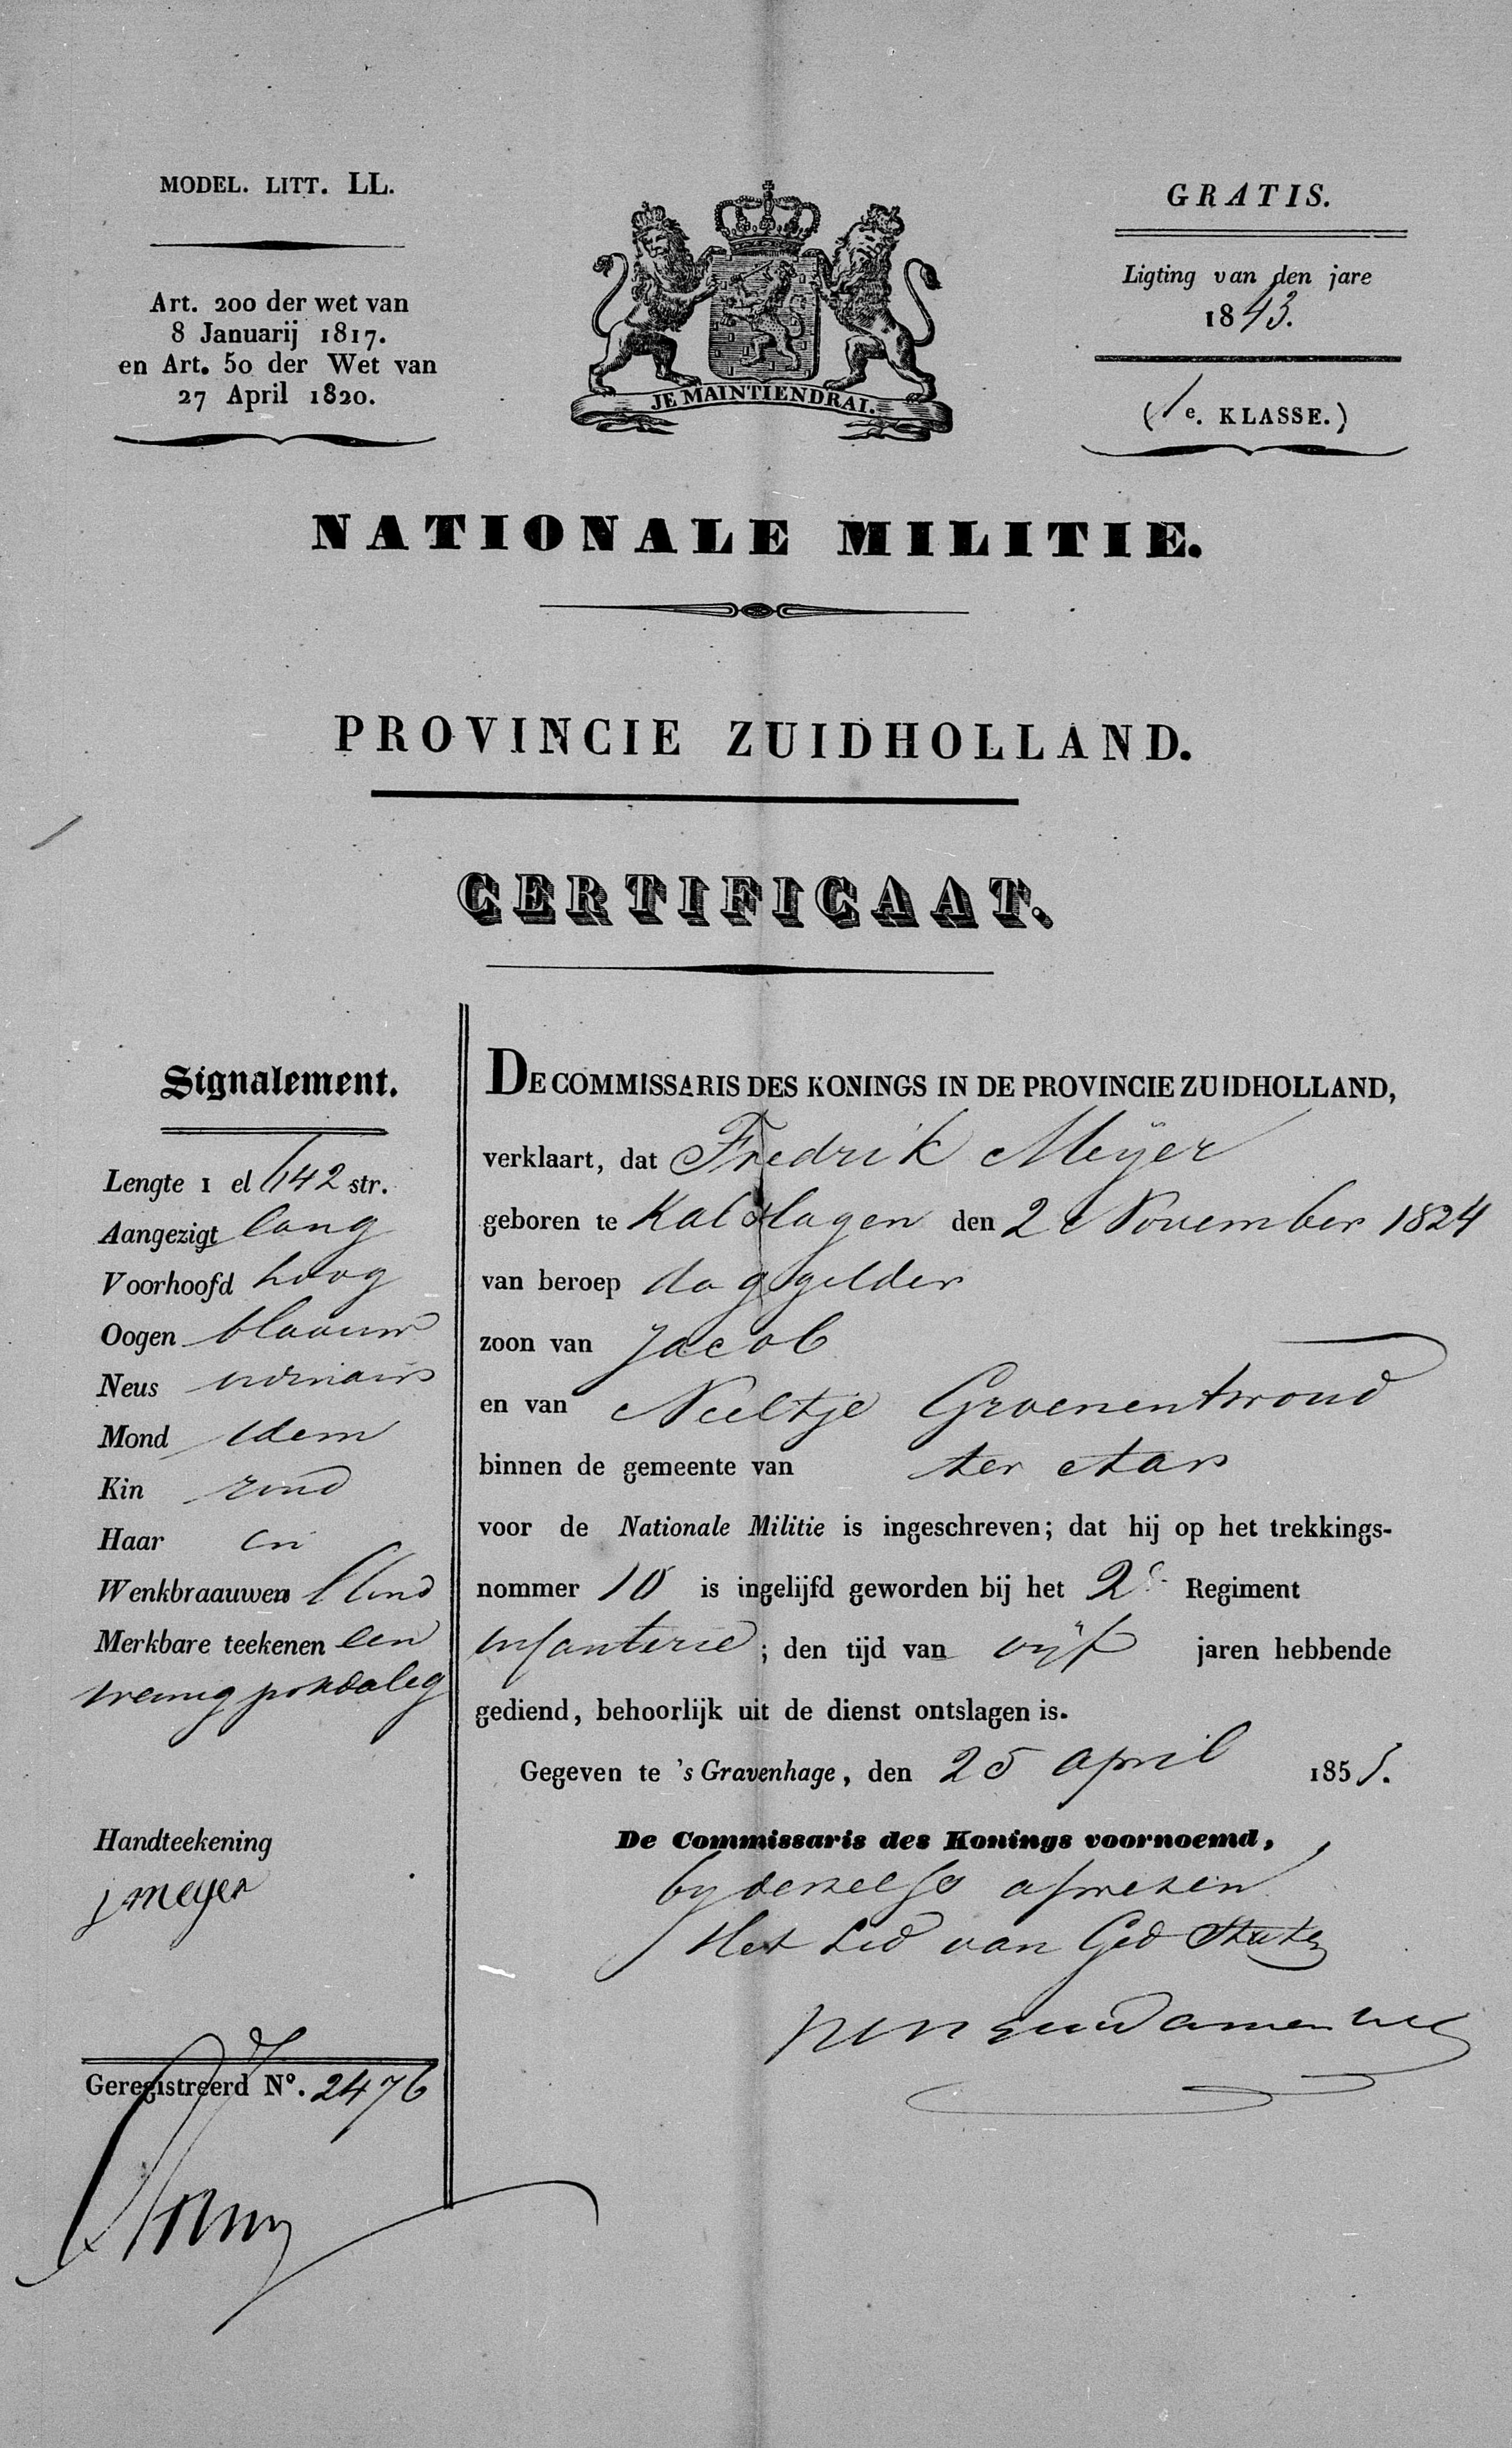 MODEL. LITT. LL.
Art. 200 der wet van
8 Januarij 1817.
en Art. 50 der Wet van
27 April 1820.
JE MAINTIENDRAI.
GRATIS.
Ligting van den jare
1843.
(1e. KLASSE.)
NATIONALE MILITIE.
PROVINCIE ZUIDHOLLAND.
CERTIFICAAT.
Signalement.
Lengte 1 el 642 str.
Aangezigt lang
Voorhoofd hoog
Oogen blaauw
Neus ordinair
Mond idem
Kin rond
Haar en
Wenkbraauwen blond
Merkbare teekenen een
weinig pokdalig
Handteekening
Meyer
Geregistreerd No. 2476
DE COMMISSARIS DES KONINGS IN DE PROVINCIE ZUIDHOLLAND,
verklaart, dat Fredrik Meijer
geboren te Kalslagen den 2 November 1824
van beroep daggelder
zoon van Jacob
en van Neeltje Groenentwoud
binnen de gemeente van ter Aar
voor de Nationale Militie is ingeschreven; dat hij op het trekkings-
nommer 10 is ingelijfd geworden bij het 2e Regiment
Infanterie; den tijd van vijf jaren hebbende
gediend, behoorlijk uit de dienst ontslagen is.
Gegeven te 's Gravenhage, den 25 April 1851.
De Commissaris des Konings voornoemd,
by deszelfs afwezen
Het Lid van Ged Staten